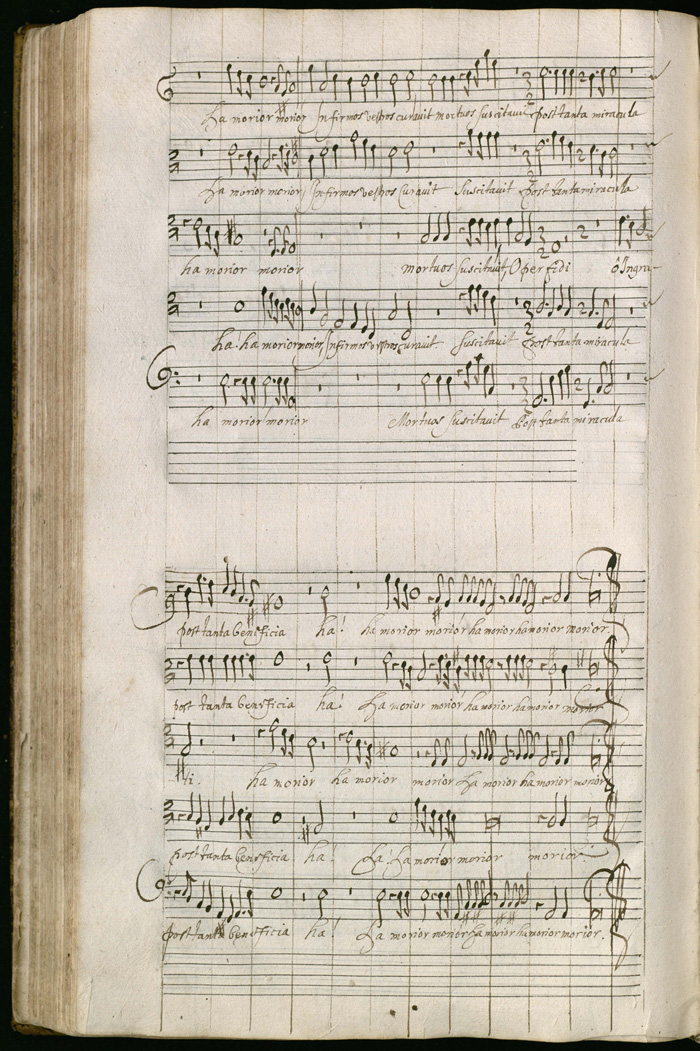 ha morior morior Infirmos vestros curavit mortuos suscitavit post tanta miracula
ha morior morior Infirmos vestros curavit suscitavit post tanta miracula
ha morior morior mortuos suscitavit, O perfidi ô Ingra-
ha ha morior morior, Infirmos vestros curavit suscitavit post tanta miracula
ha morior morior Mortuos suscitavit post tanta miracula
post tanta beneficia ha! ha morior morior ha morior ha morior morior.
post tanta beneficia ha! ha morior morior ha morior ha morior morior
ti. ha morior ha morior morior ha morior ha morior morior
post tanta beneficia ha! ha ha morior morior morior
post tanta beneficia ha! ha morior morior ha morior ha morior morior.